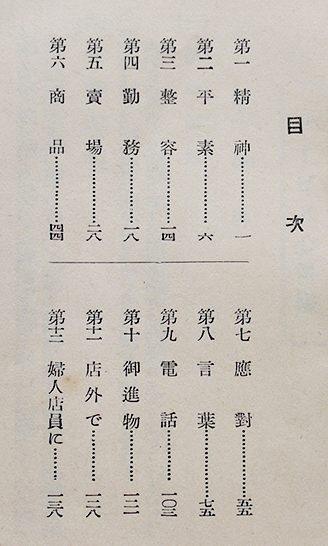 目次
第一 精神…………一
第二 平素…………六
第三 整容…………一四
第四 勤務…………一八
第五 賣場…………二八
第六 商品…………四四
第七 應對…………五五
第八 言葉…………七五
第九 電話…………一〇三
第十 御進物…………一二一
第十一 店外で…………一二八
第十二 婦人店員に…………一三八